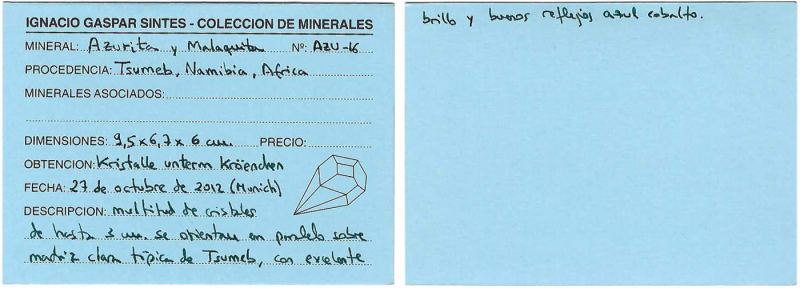 IGNACIO GASPAR SINTES - COLECCION DE MINERALES
MINERAL: Azurita y Malaquita Nº: AZU-16
PROCEDENCIA: Tsumeb, Namibia, Africa
MINERALES ASOCIADOS:
DIMENSIONES: 9,5x6,7x6 cm. PRECIO:
OBTENCION: Kristalle unterm Kröenchen
FECHA: 27 de octubre de 2012 (Munich)
DESCRIPCION: multitud de cristales
de hasta 3 cm. se orientan en paralelo sobre
matriz clara típica de Tsumeb, con excelente
brillo y buenos reflejos azul cobalto.